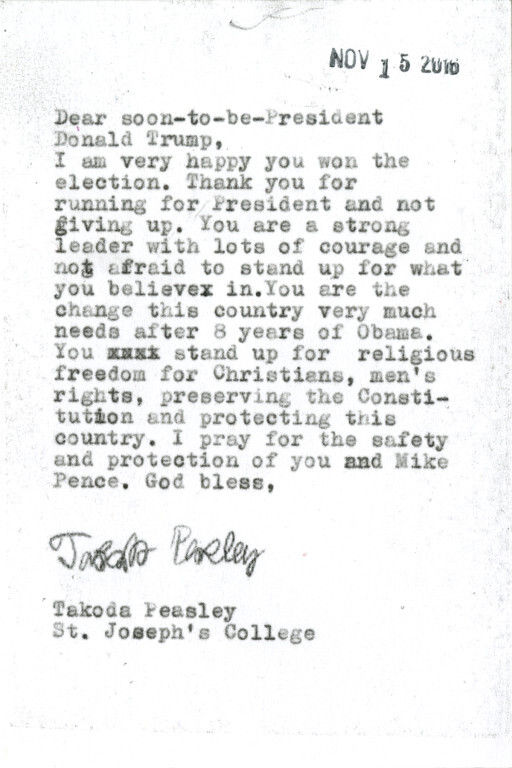 NOV 15 2016
Dear soon-to-be-President
Donald Trump,
I am very happy you won the
election. Thank you for
running for President and not
giving up. You are a strong
leader with lots of courage and
not afraid to stand up for what
you believex in.You are the
change this country very much
needs after 8 years of Obama.
You xxxx stand up for religious
freedom for Christians, men's
rights, preserving the Consti-
tution and protecting this
country. I pray for the safety
and protection of you and Mike
Pence. God bless,
Takoda Peasley
Takoda Peasley
St. Joseph's College